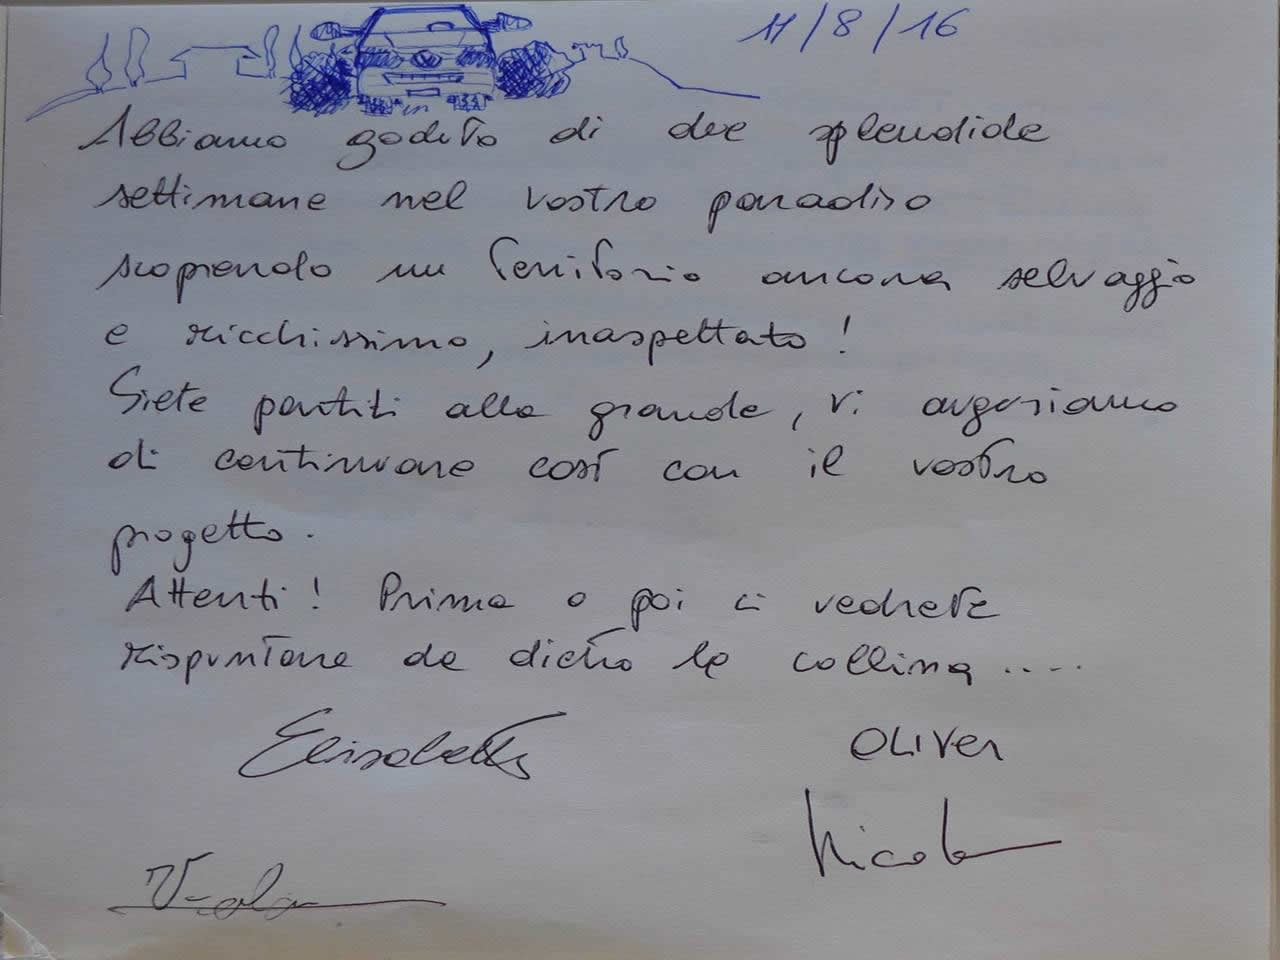 11/8/16
Abbiamo goduto di due splendide
settimane nel vostro paradiso
scoprendo un territorio ancora selvaggio
e ricchissimo, inaspettato!
Siete partiti alla grande, vi auguriamo
di continuare così con il vostro
progetto.
Attenti! Prima o poi ci vedrete
rispuntare da dietro la collina.....
Elisabetta
OLIVER
Nicola
Viola